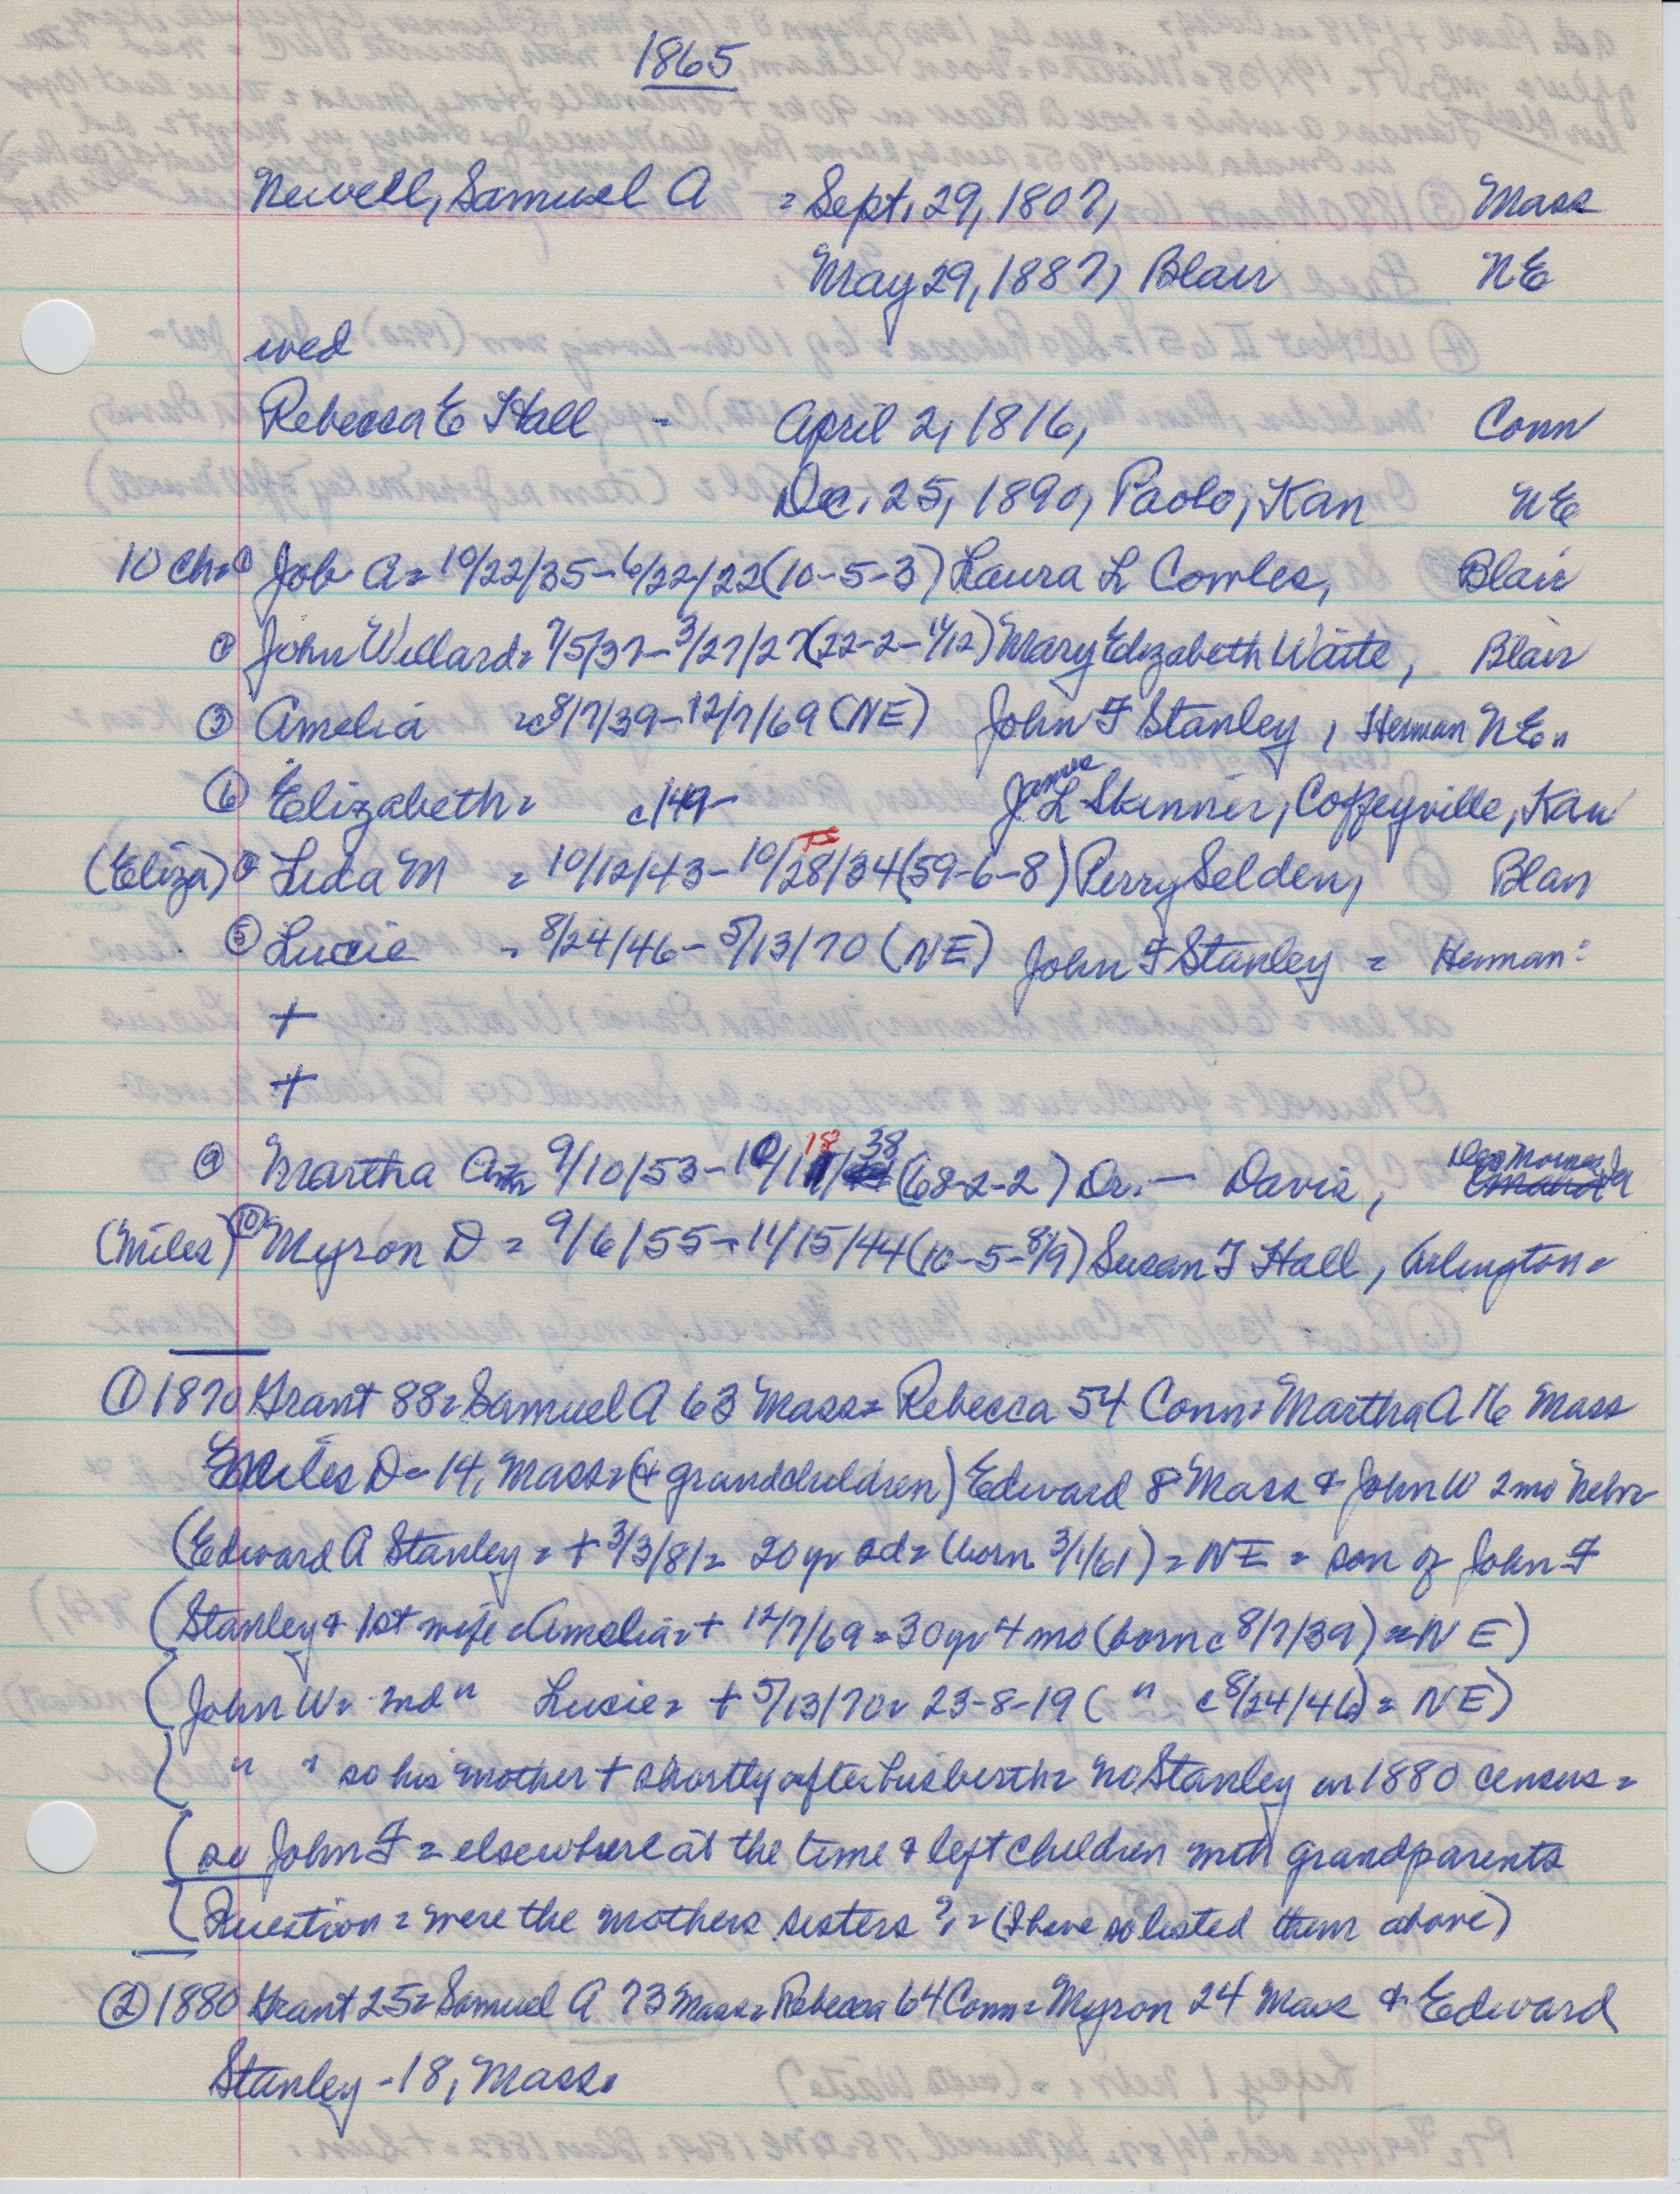 1865
Newell, Samuel A = Sept. 29, 1807, Mass
May 29, 1887, Blair NE
wed
Rebecca E Hall - April 2, 1816, Conn
Dec. 25, 1890, Paolo, Kan NE
10 Ch= ① Job A = 10/22/35-6/22/22 (10-5-3) Laura L Cowles, Blair
② John Willard = 7/5/37-3/27/27 (22-2-11/12) Mary Elizabeth Waite, Blair
③ Amelia =c8/7/39-12/7/69 (NE) John F Stanley, Herman NE"
⑥ Elizabeth = c/49- James L Skinner, Coffeyville, Kan
(Eliza) ④ Lida M = 10/12/43-10/28/34 (59-6-8) Perry Selden, Blair
⑤ Lucie = 8/24/46-5/13/70 (NE) John F Stanley = Herman"
+
+
⑨ Martha A = 9/10/53-10/18/38 (68-2-2) Dr. - Davis, Des Moines, Ia
(Miles) ⑩ Myron D = 9/6/55-11/15/44 (10-5-8/9) Susan F Hall, Arlington =
① 1870 Grant 88 = Samuel A 63 Mass = Rebecca 54 Conn = Martha A 16 Mass
Miles D - 14, Mass = (+ grandchildren) Edward 8 Mass & John W 2mo Nebr
(Edward A Stanley = + 3/3/81 = 20 yr ad = (born 3/1/61) = NE = son of John F
(Stanley & 1st wife = Amelia = + 12/7/69 = 30 yr 4 mo (born c 8/7/39) = NE)
(John W = 2nd " Lucie = + 5/13/70 = 23-8-19 ( " c 8/24/46) = NE)
( " " so his mother + shortly after his birth = no Stanley in 1880 census =
( so John F = elsewhere at the time & left children with grandparents
(Question = were the mothers sisters? = (I have so listed them above)
② 1880 Grant 25 = Samuel A 73 Mass = Rebecca 64 Conn = Myron 24 Mass & Edward
Stanley - 18, Mass.